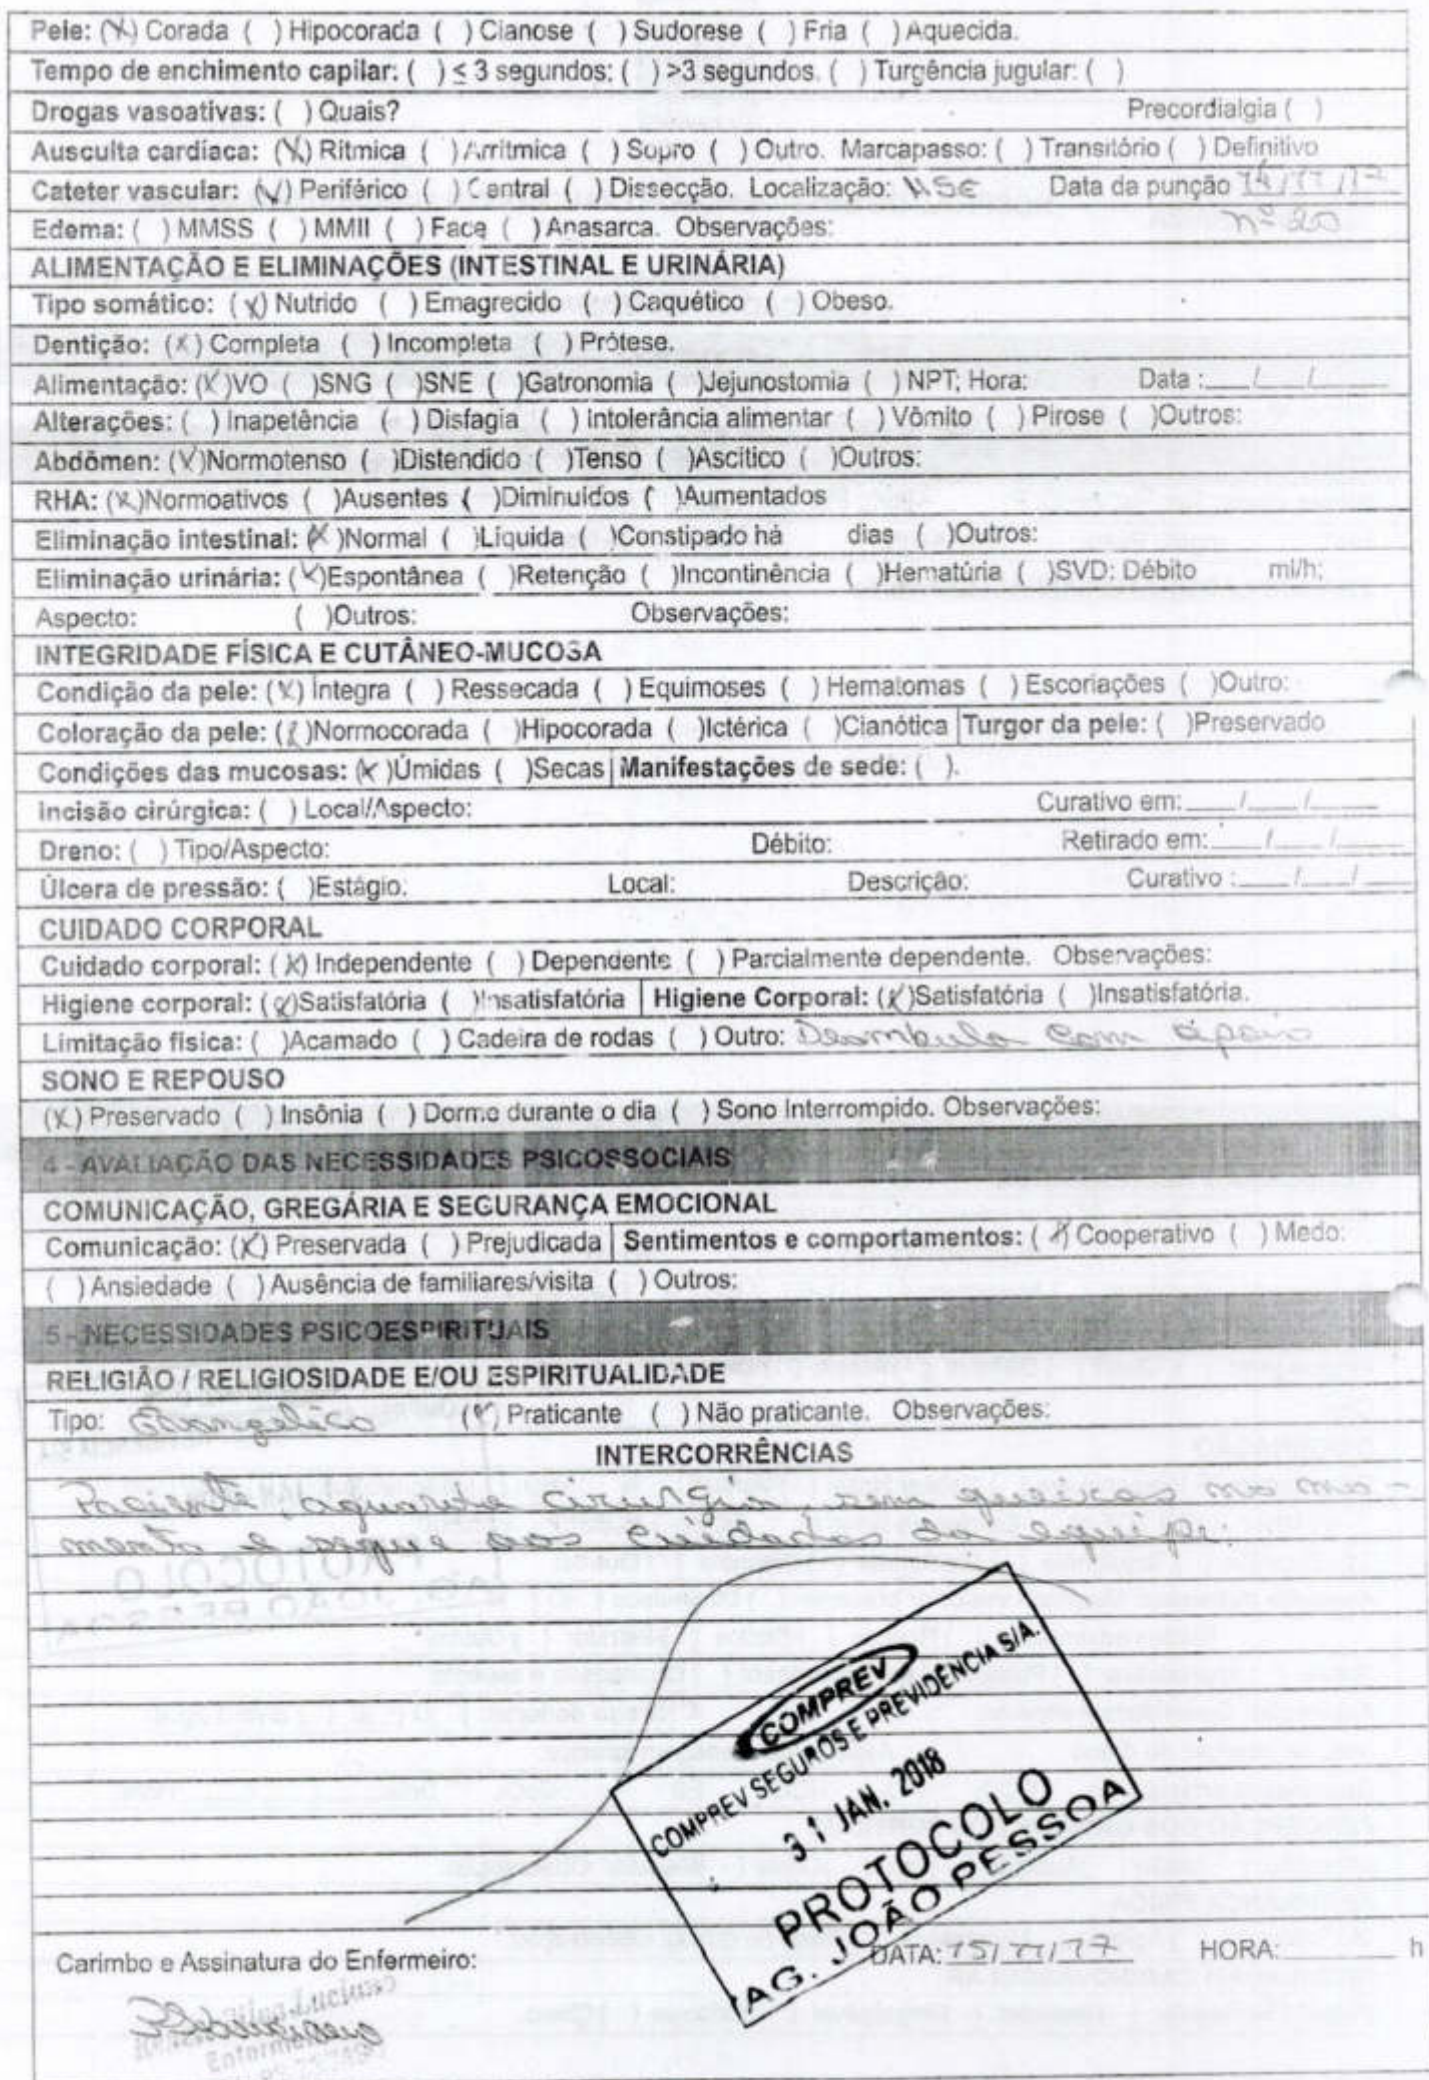 Pele: (X) Corada ( ) Hipocorada ( ) Cianose ( ) Sudorese ( ) Fria ( ) Aquecida.
Tempo de enchimento capilar: ( ) ≤ 3 segundos; ( ) >3 segundos. ( ) Turgência jugular: ( )
Drogas vasoativas: ( ) Quais? Precordialgia ( )
Ausculta cardíaca: (X) Rítmica ( ) Arritmica ( ) Sopro ( ) Outro. Marcapasso: ( ) Transitório ( ) Definitivo
Cateter vascular: (X) Periférico ( ) Central ( ) Dissecção. Localização: MSE Data da punção 14/11/17
nº 20
Edema: ( ) MMSS ( ) MMII ( ) Face ( ) Anasarca. Observações:
ALIMENTAÇÃO E ELIMINAÇÕES (INTESTINAL E URINÁRIA)
Tipo somático: (X) Nutrido ( ) Emagrecido ( ) Caquético ( ) Obeso.
Dentição: (X) Completa ( ) Incompleta ( ) Prótese.
Alimentação: (X)VO ( )SNG ( )SNE ( )Gatronomia ( )Jejunostomia ( ) NPT; Hora: Data :___/___/___
Alterações: ( ) Inapetência ( ) Disfagia ( ) Intolerância alimentar ( ) Vômito ( ) Pirose ( )Outros:
Abdômen: (X)Normotenso ( )Distendido ( )Tenso ( )Ascitico ( )Outros:
RHA: (X)Normoativos ( )Ausentes ( )Diminuidos ( )Aumentados
Eliminação intestinal: (X)Normal ( )Líquida ( )Constipado há dias ( )Outros:
Eliminação urinária: (X)Espontânea ( )Retenção ( )Incontinência ( )Hematúria ( )SVD: Débito ml/h;
Aspecto: ( )Outros: Observações:
INTEGRIDADE FÍSICA E CUTÂNEO-MUCOSA
Condição da pele: (X) Íntegra ( ) Ressecada ( ) Equimoses ( ) Hematomas ( ) Escoriações ( )Outro:
Coloração da pele: (X)Normocorada ( )Hipocorada ( )Ictérica ( )Cianótica Turgor da pele: ( )Preservado
Condições das mucosas: (X)Úmidas ( )Secas Manifestações de sede: ( ).
Incisão cirúrgica: ( ) Local/Aspecto: Curativo em: ___/___/___
Dreno: ( ) Tipo/Aspecto: Débito: Retirado em: ___/___/___
Úlcera de pressão: ( )Estágio: Local: Descrição: Curativo : ___/___/___
CUIDADO CORPORAL
Cuidado corporal: (X) Independente ( ) Dependente ( ) Parcialmente dependente. Observações:
Higiene corporal: (X)Satisfatória ( )Insatisfatória Higiene Corporal: (X)Satisfatória ( )Insatisfatória.
Limitação física: ( )Acamado ( ) Cadeira de rodas ( ) Outro: Deambula com apoio
SONO E REPOUSO
(X) Preservado ( ) Insônia ( ) Dorme durante o dia ( ) Sono Interrompido. Observações:
4 - AVALIAÇÃO DAS NECESSIDADES PSICOSSOCIAIS
COMUNICAÇÃO, GREGÁRIA E SEGURANÇA EMOCIONAL
Comunicação: (X) Preservada ( ) Prejudicada Sentimentos e comportamentos: (X) Cooperativo ( ) Medo:
( ) Ansiedade ( ) Ausência de familiares/visita ( ) Outros:
5 - NECESSIDADES PSICOESPIRITUAIS
RELIGIÃO / RELIGIOSIDADE E/OU ESPIRITUALIDADE
Tipo: Evangelico (X) Praticante ( ) Não praticante. Observações:
INTERCORRÊNCIAS
Paciente, aguarda cirurgia, sem queixas no mo-
mento e segue aos cuidados da equipe.
COMPREV
COMPREV SEGUROS E PREVIDÊNCIA S/A.
31 JAN. 2018
PROTOCOLO
AG. JOÃO PESSOA
Carimbo e Assinatura do Enfermeiro: DATA: 15/11/17 HORA: ______ h